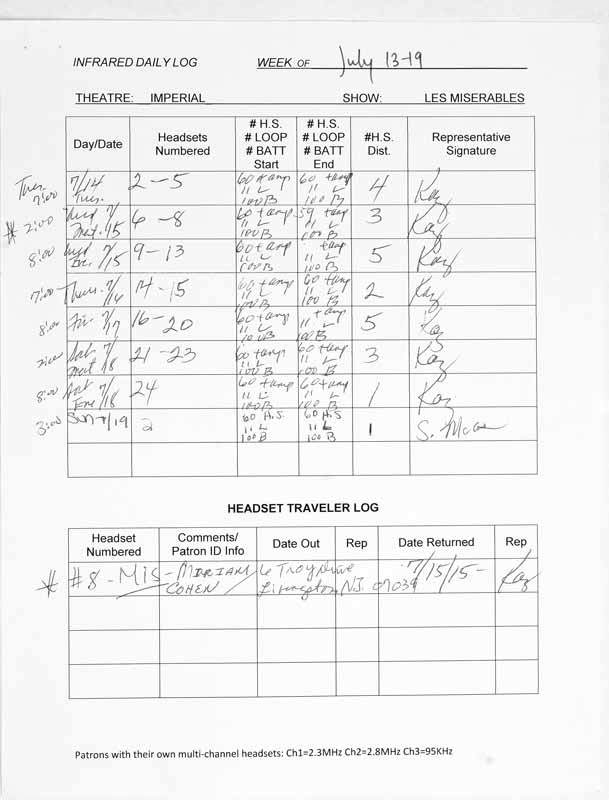 INFRARED DAILY LOG WEEK OF July 13-19
THEATRE: IMPERIAL SHOW: LES MISERABLES
Day/Date Headsets Numbered # H.S. # LOOP # BATT Start # H.S. # LOOP # BATT End #H.S. Dist. Representative Signature
Tues. 7:00 7/14 Tues. 2-5 60 + amp 11 L 100 B 60 + amp 11 L 100 B 4 Kaz
* 2:00 Wed 7/15 Mat. 6-8 60 + amp 11 L 100 B 59 + amp 11 L 100 B 3 Kaz
8:00 Wed 7/15 Eve. 9-13 60 + amp 11 L 100 B + amp 11 L 100 B 5 Kaz
7:00 Thurs. 7/16 14-15 60 + amp 11 L 100 B 60 + amp 11 L 100 B 2 Kaz
8:00 Fri. 7/17 16-20 60 + amp 11 L 100 B + amp 11 L 100 B 5 Kaz
2:00 Sat. 7/18 Mat 21-23 60 + amp 11 L 100 B 60 + amp 11 L 100 B 3 Kaz
8:00 Sat 7/18 Eve 24 60 + amp 11 L 100 B 60 + amp 11 L 100 B 1 Kaz
3:00 SUN 7/19 2 60 H.S 11 L 100 B 60 H.S 11 L 100 B 1 S.
HEADSET TRAVELER LOG
Headset Numbered Comments/ Patron ID Info Date Out Rep Date Returned Rep
* #8 - Mis - MIRIAM COHEN 6 Troy Drive Livingston, N.J. 07039 7/15/15- Kaz
Patrons with their own multi-channel headsets: Ch1=2.3MHz Ch2=2.8MHz Ch3=95KHz